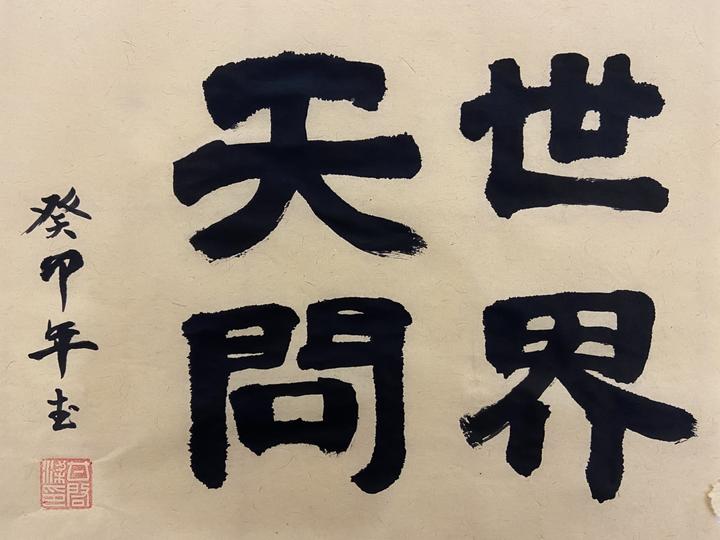 世界
天問
癸卯年書